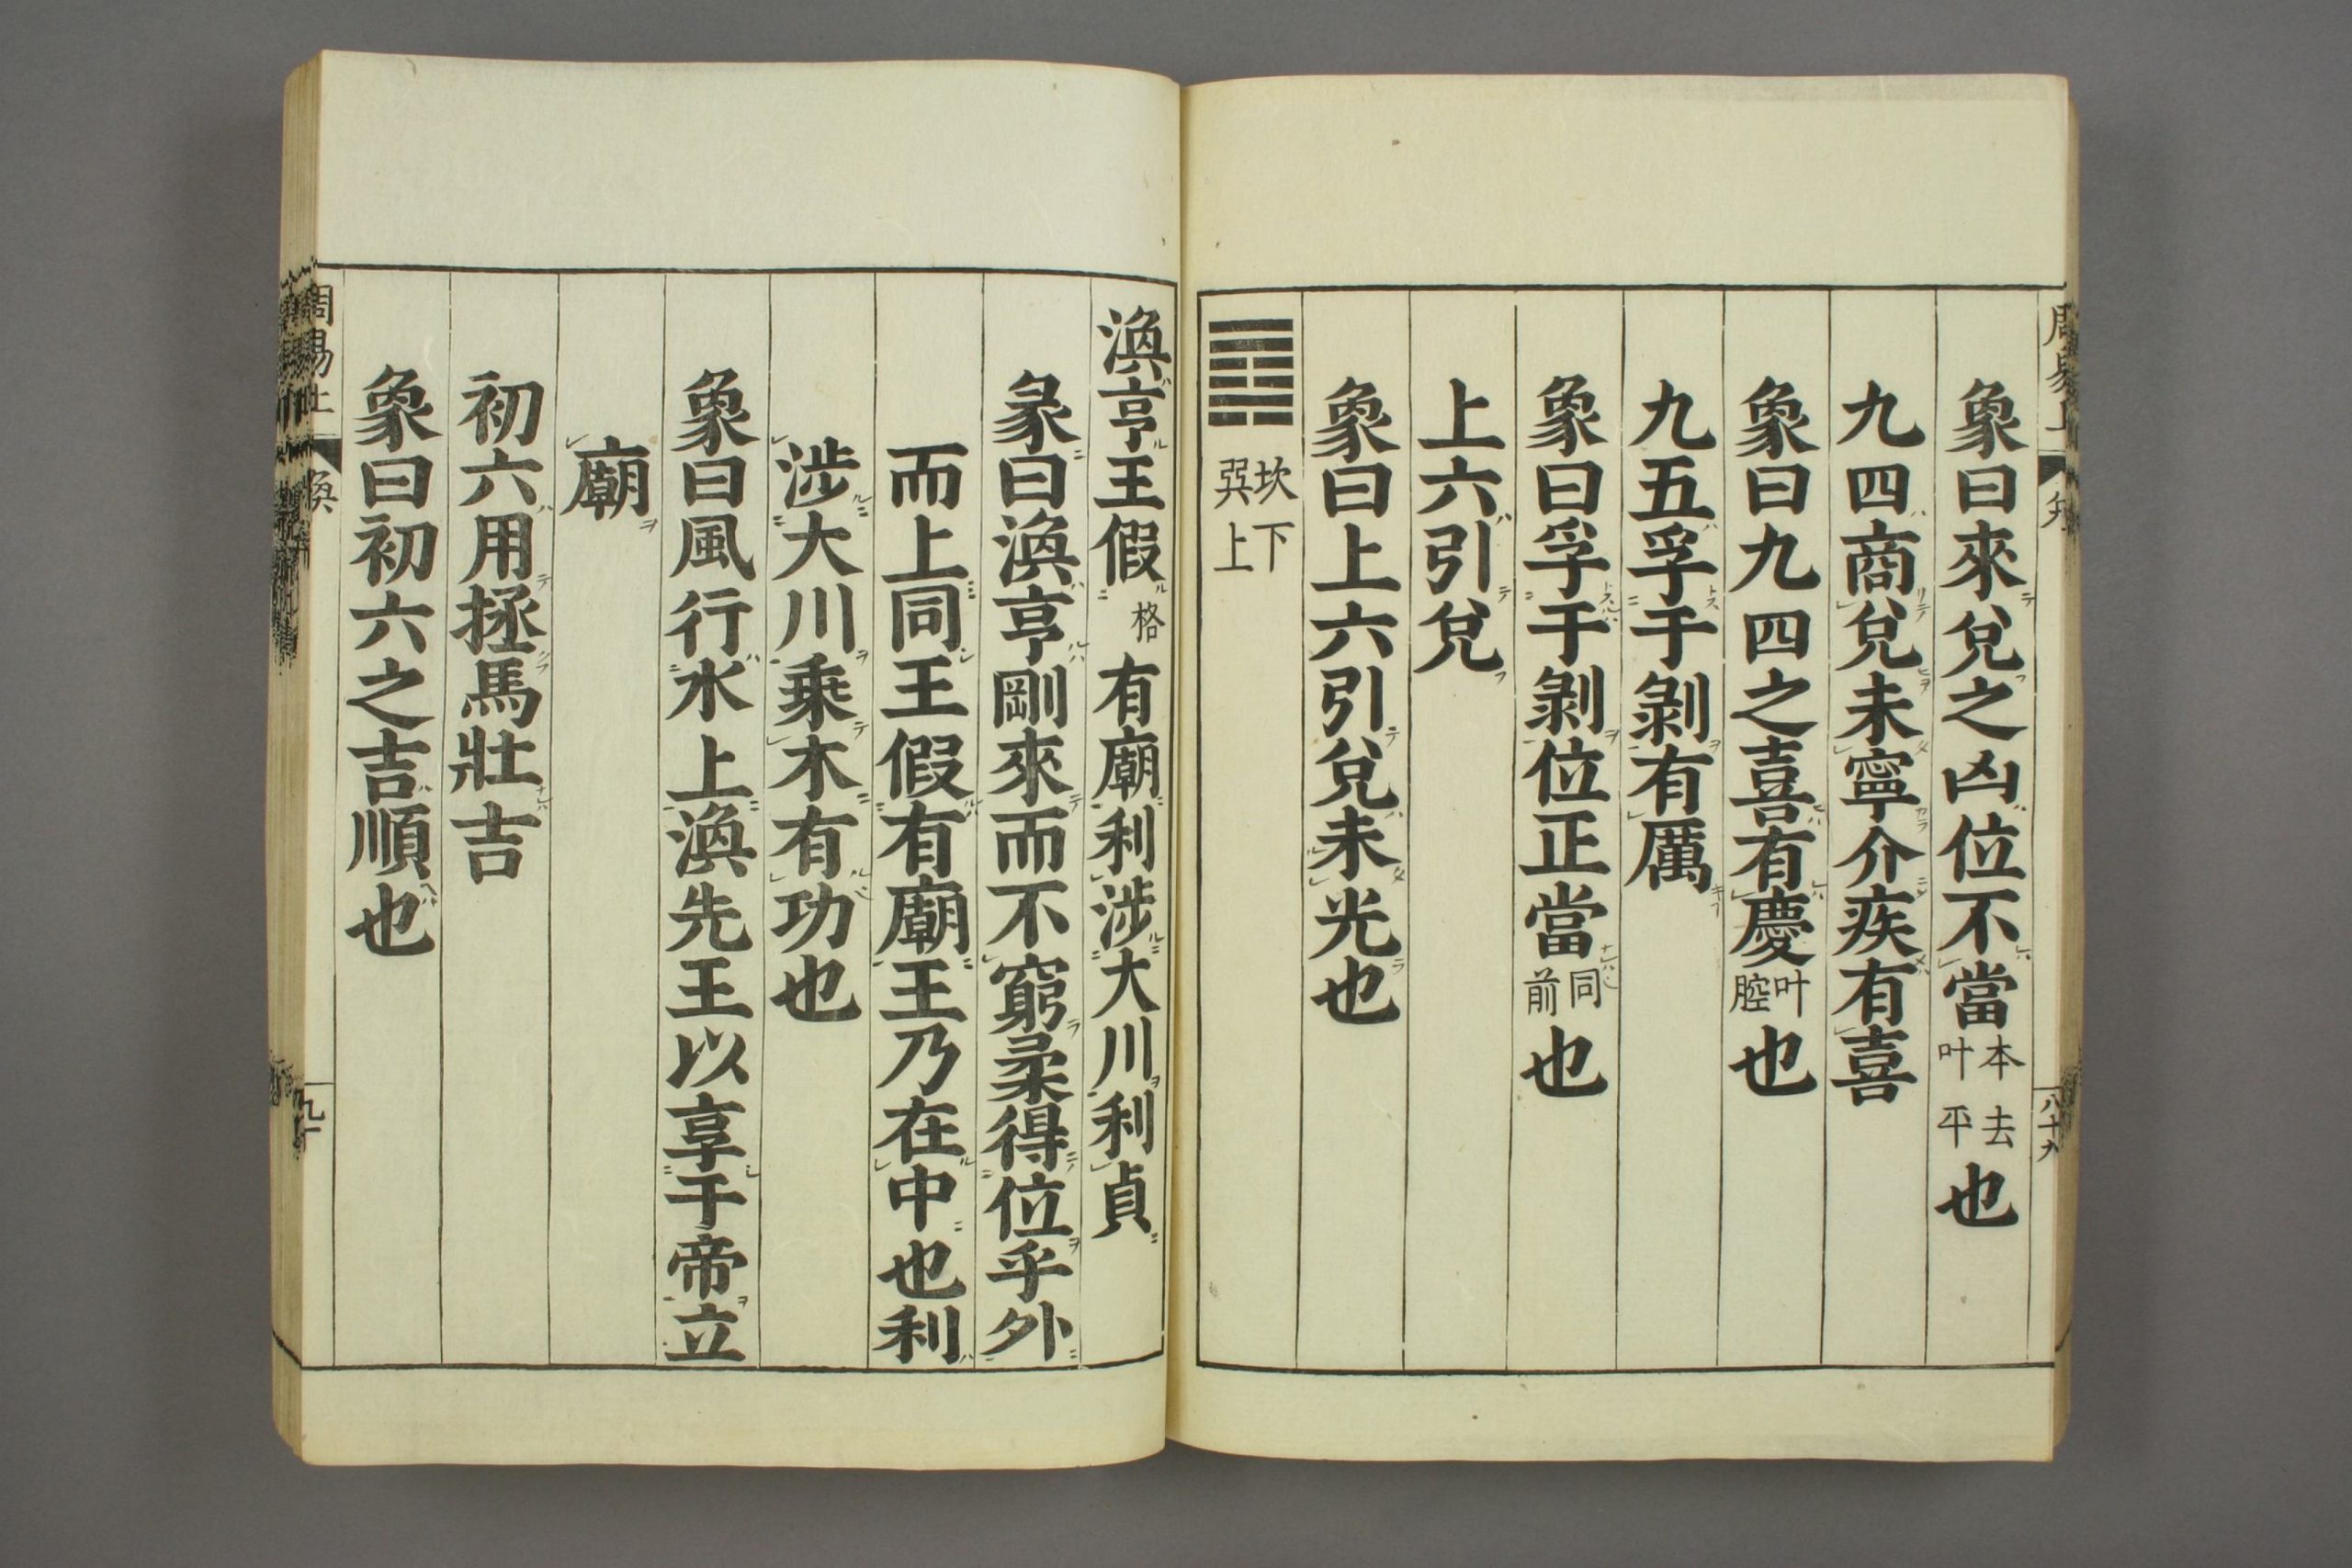 象曰來兌之凶位不當本去叶平也
九四商兌未寧介疾有喜
象曰九四之喜有慶叶腔也
九五孚于剝有厲
象曰孚于剝位正當同前也
上六引兌
象曰上六引兌未光也
坎下巽上
渙亨王假格有廟利涉大川利貞
彖曰渙亨剛來而不窮柔得位乎外
而上同王假有廟王乃在中也利
涉大川乘木有功也
象曰風行水上渙先王以享于帝立
廟
初六用拯馬壯吉
象曰初六之吉順也
周易上
渙
九十